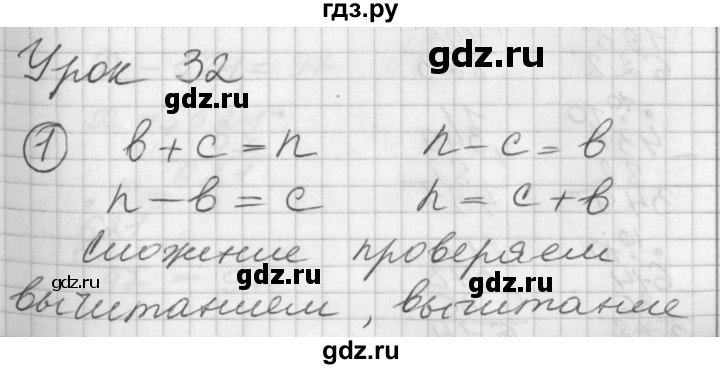 гдз.ру
Урок 32
gdz.ru
gdz.ru
① в + с = n    n - с = в
n - в = с    n = с + в
Сложение проверяем
gdz.ru gdz.ru gdz.ru
вычитанием, вычитание
gdz.ru